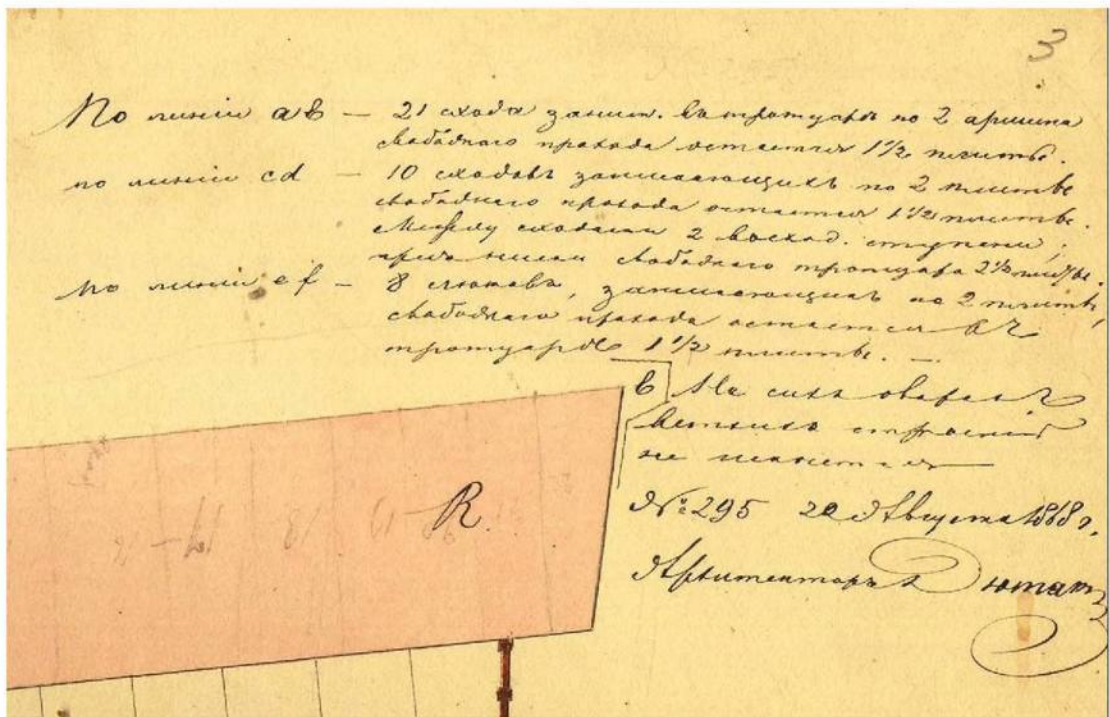 3
По линіи ab — 21 схода заним. въ тротуарѣ по 2 аршина
свободнаго прохода остается 1 1/2 плиты.
по линіи cd — 10 сходовъ занимающихъ по 2 плиты
свободнаго прохода остается 1 1/2 плиты.
Между сходами 2 восход. ступени,
свободнаго тротуара 2 1/2 плиты.
По линіи ef — 8 люковъ, занимающихъ по 2 плиты,
свободнаго прохода остается въ
тротуарѣ 1 1/2 плиты. —
На сихъ
ветхихъ строеній
не имѣется
R.
№ 295 20 Августа 1868 г.
Архитекторъ Дютакъ